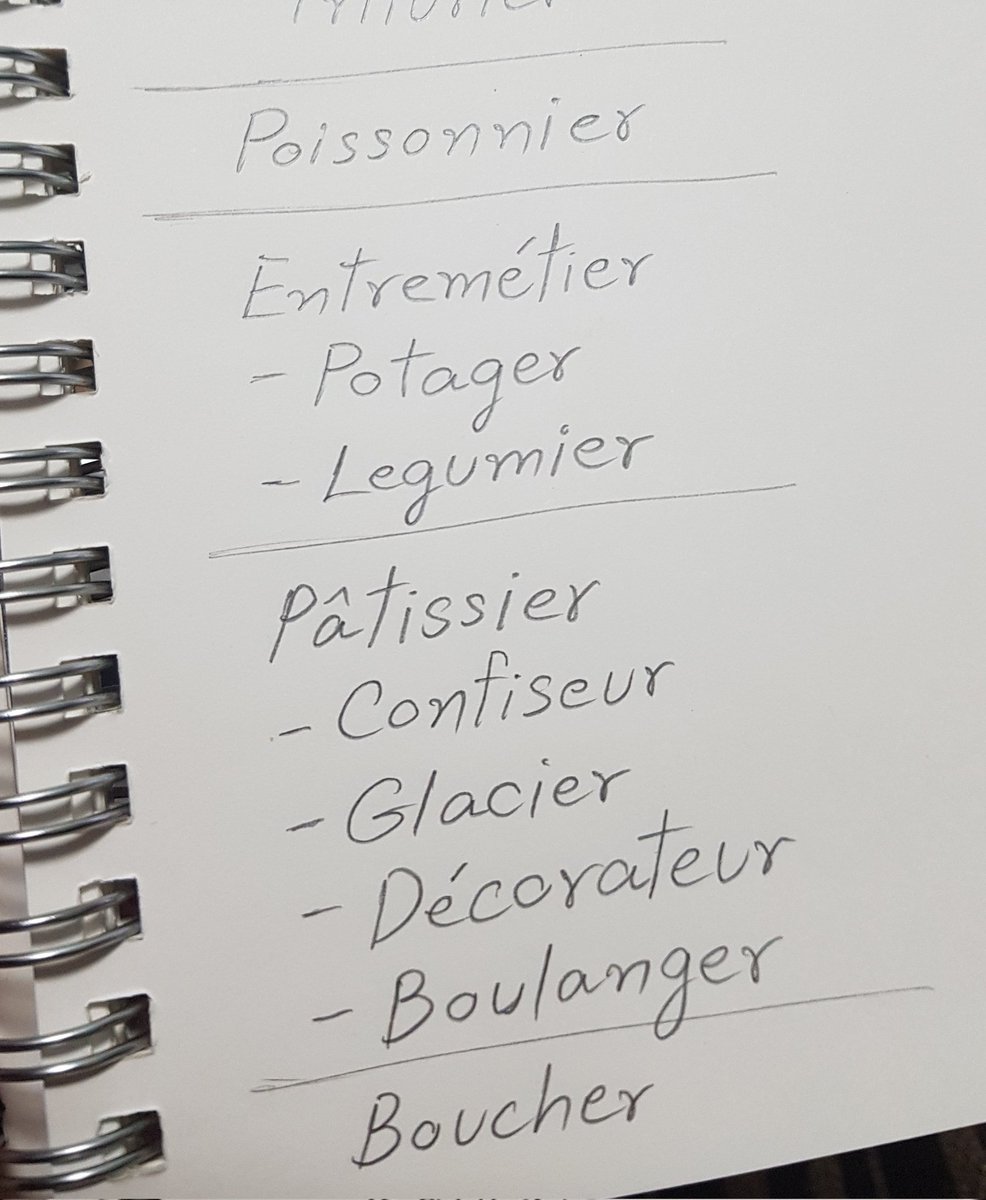 Poissonnier
Entremétier
- Potager
- Legumier
Pâtissier
- Confiseur
- Glacier
- Décorateur
- Boulanger
Boucher